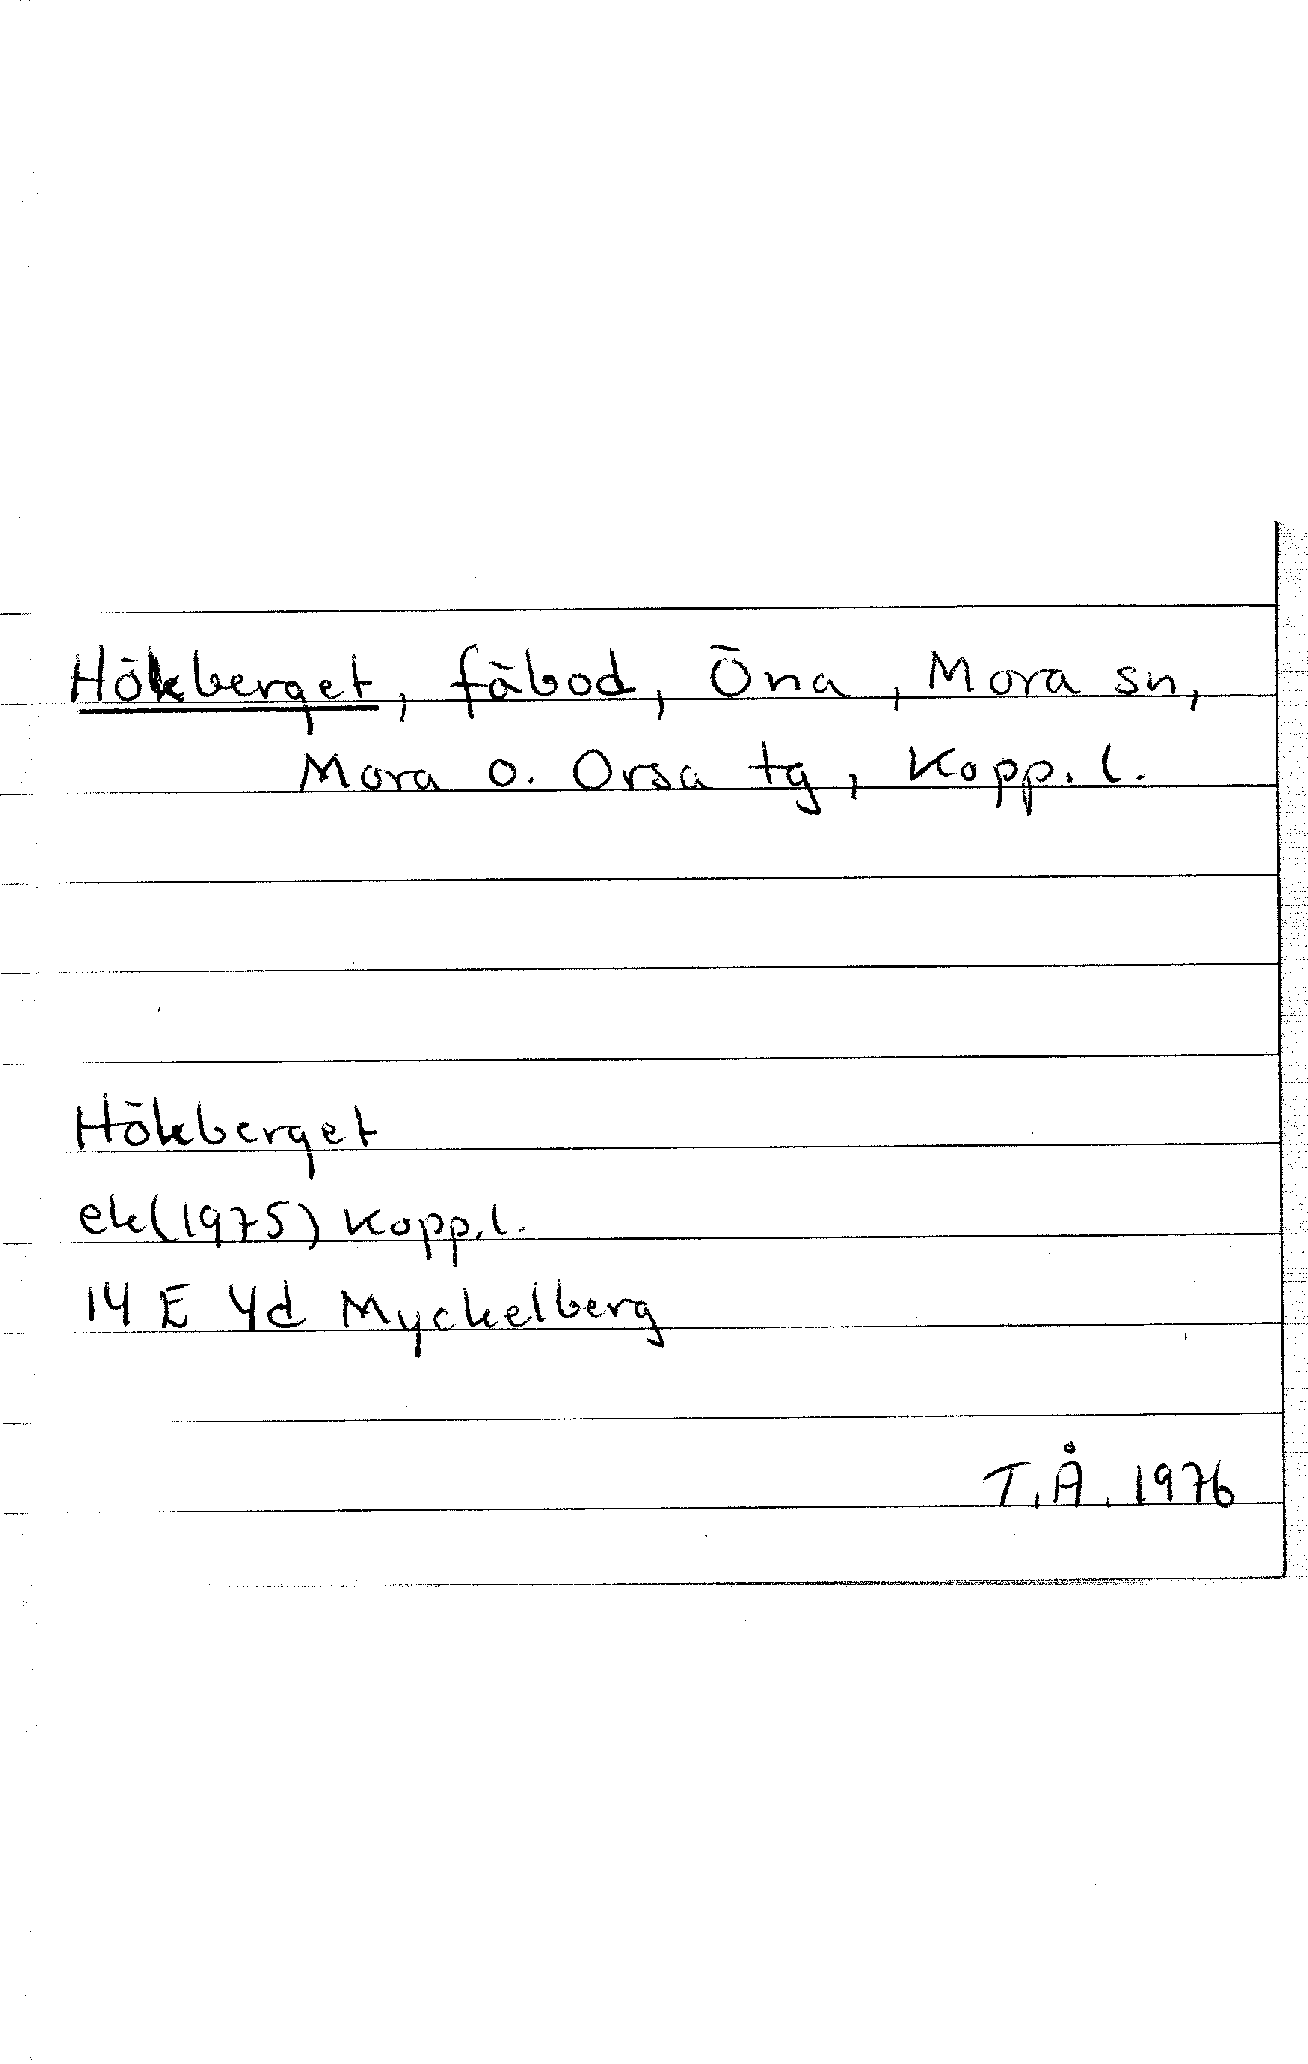 Hökberget, fäbod, Öna, Mora sn,
Mora o. Orsa tg, Kopp. l.
Hökberget
ek(1975) Kopp. l.
14 E 4d Myckelberg
T.Å. 1976